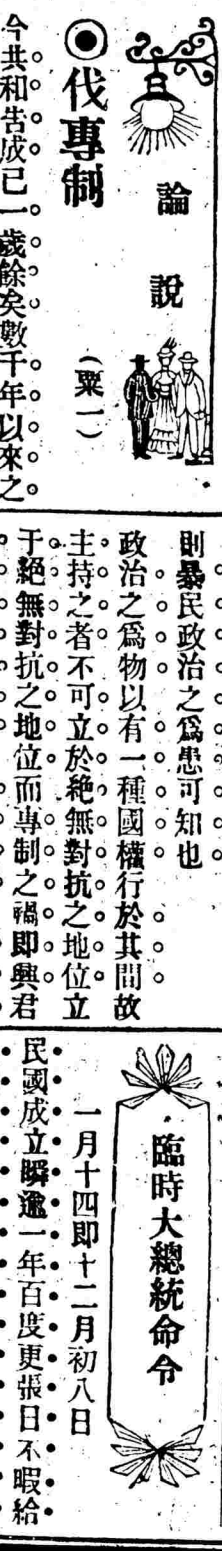 論說
◉代專制
（粟一）
今共和告成已一歲餘矣數千年以來之
則暴民政治之爲患可知也
政治之爲物以有一種國權行於其間故
主持之者不可立於絶無對抗之地位立
于絶無對抗之地位而專制之禍即興君
臨時大總統命令
一月十四即十二月初八日
民國成立瞬逾一年百度更張日不暇給